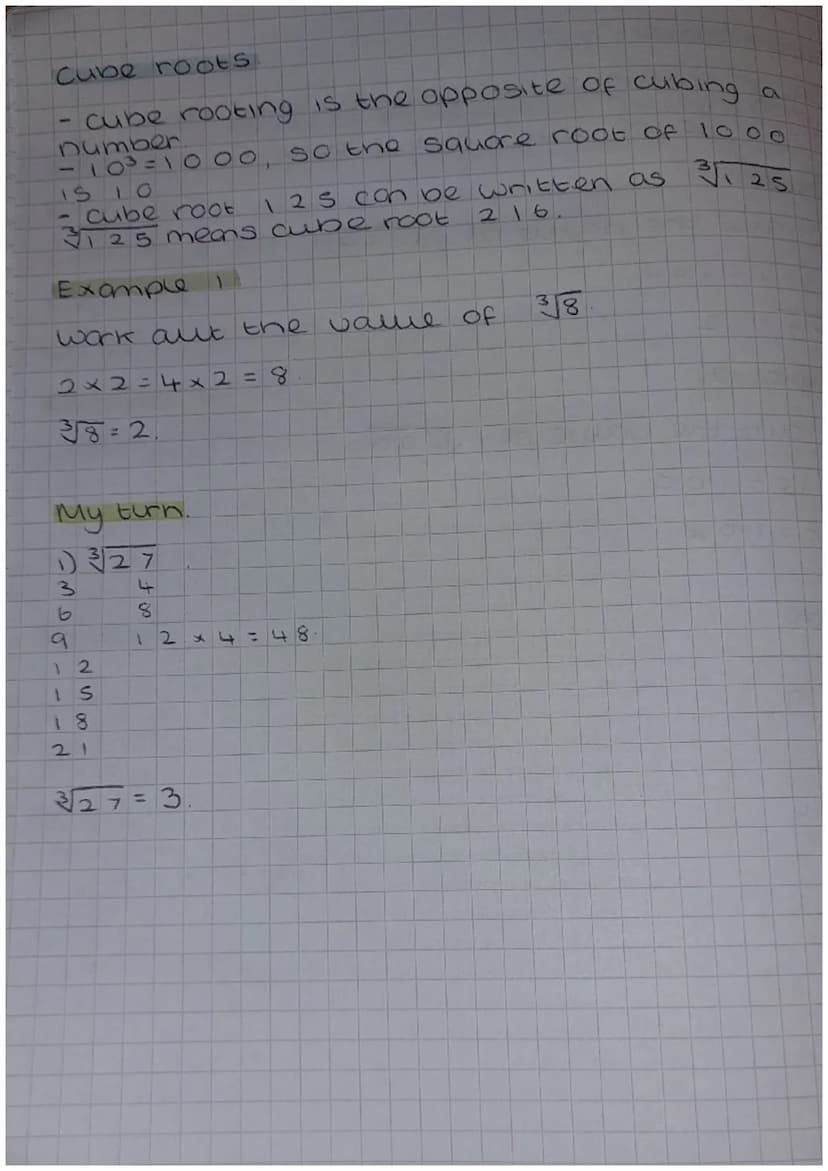 Cube roots
- cube rooting is the opposite of cubing a
number.
- 10³=1000, so the square root of 1000
is 10
- cube root 125 can be written as ∛125
∛125 means cube root 216.
Example 1
work out the value of ∛8.
2×2=4×2=8.
∛8=2.
My turn.
1) ∛27
3 4
6 8
9 12×4=48.
12
15
18
21
∛27=3.